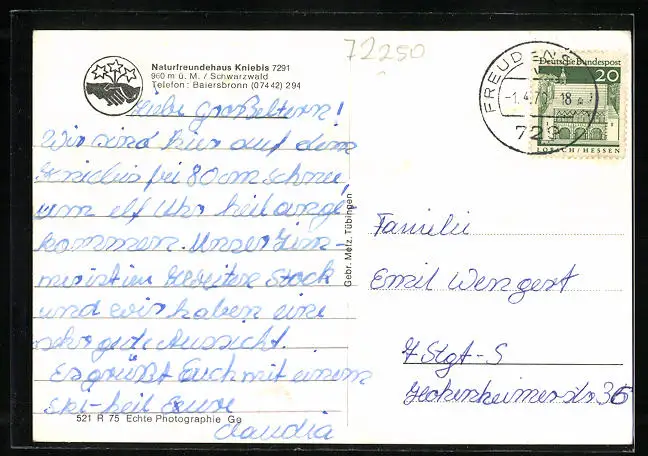 72250
Naturfreundehaus Kniebis 7291
960 m ü. M. / Schwarzwald
Telefon: Baiersbronn (07442) 294
Liebe Großeltern!
Wir sind hier auf dem
Kniebis bei 80 cm Schnee,
um elf Uhr heil ange-
kommen. Unser Zim-
mer ist im zweiten Stock
und wir haben eine
sehr gute Aussicht.
Es grüßt Euch mit einem
Ski-heil Eure
Claudia
521 R 75 Echte Photographie
Gebr. Metz, Tübingen
FREUDENS
18
729
Deutsche Bundespost
20
LORSCH/HESSEN
Familie
Emil Wengert
7 Stgt-S
Hohenheimerstr 36